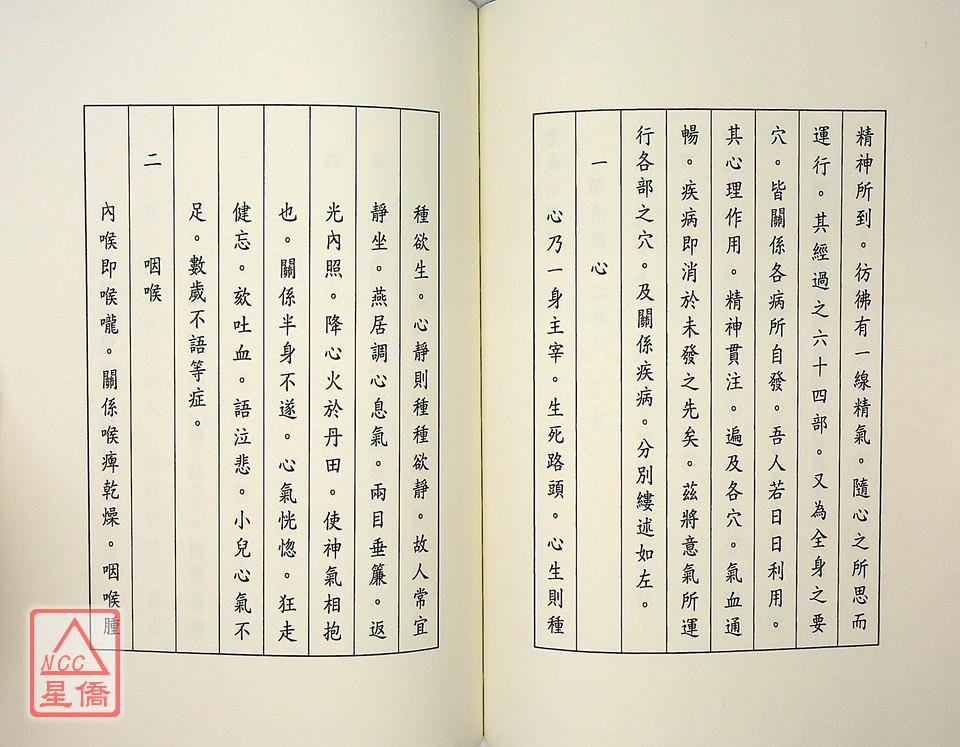 精神所到。彷彿有一線精氣。隨心之所思而
運行。其經過之六十四部。又為全身之要
穴。皆關係各病所自發。吾人若日日利用。
其心理作用。精神貫注。遍及各穴。氣血通
暢。疾病即消於未發之先矣。茲將意氣所運
行各部之穴。及關係疾病。分別縷述如左。
一 心
心乃一身主宰。生死路頭。心生則種
種欲生。心靜則種種欲靜。故人常宜
靜坐。燕居調心息氣。兩目垂簾。返
光內照。降心火於丹田。使神氣相抱
也。關係半身不遂。心氣恍惚。狂走
健忘。欬吐血。語泣悲。小兒心氣不
足。數歲不語等症。
二 咽喉
內喉即喉嚨。關係喉痺乾燥。咽喉腫
NCC
星僑